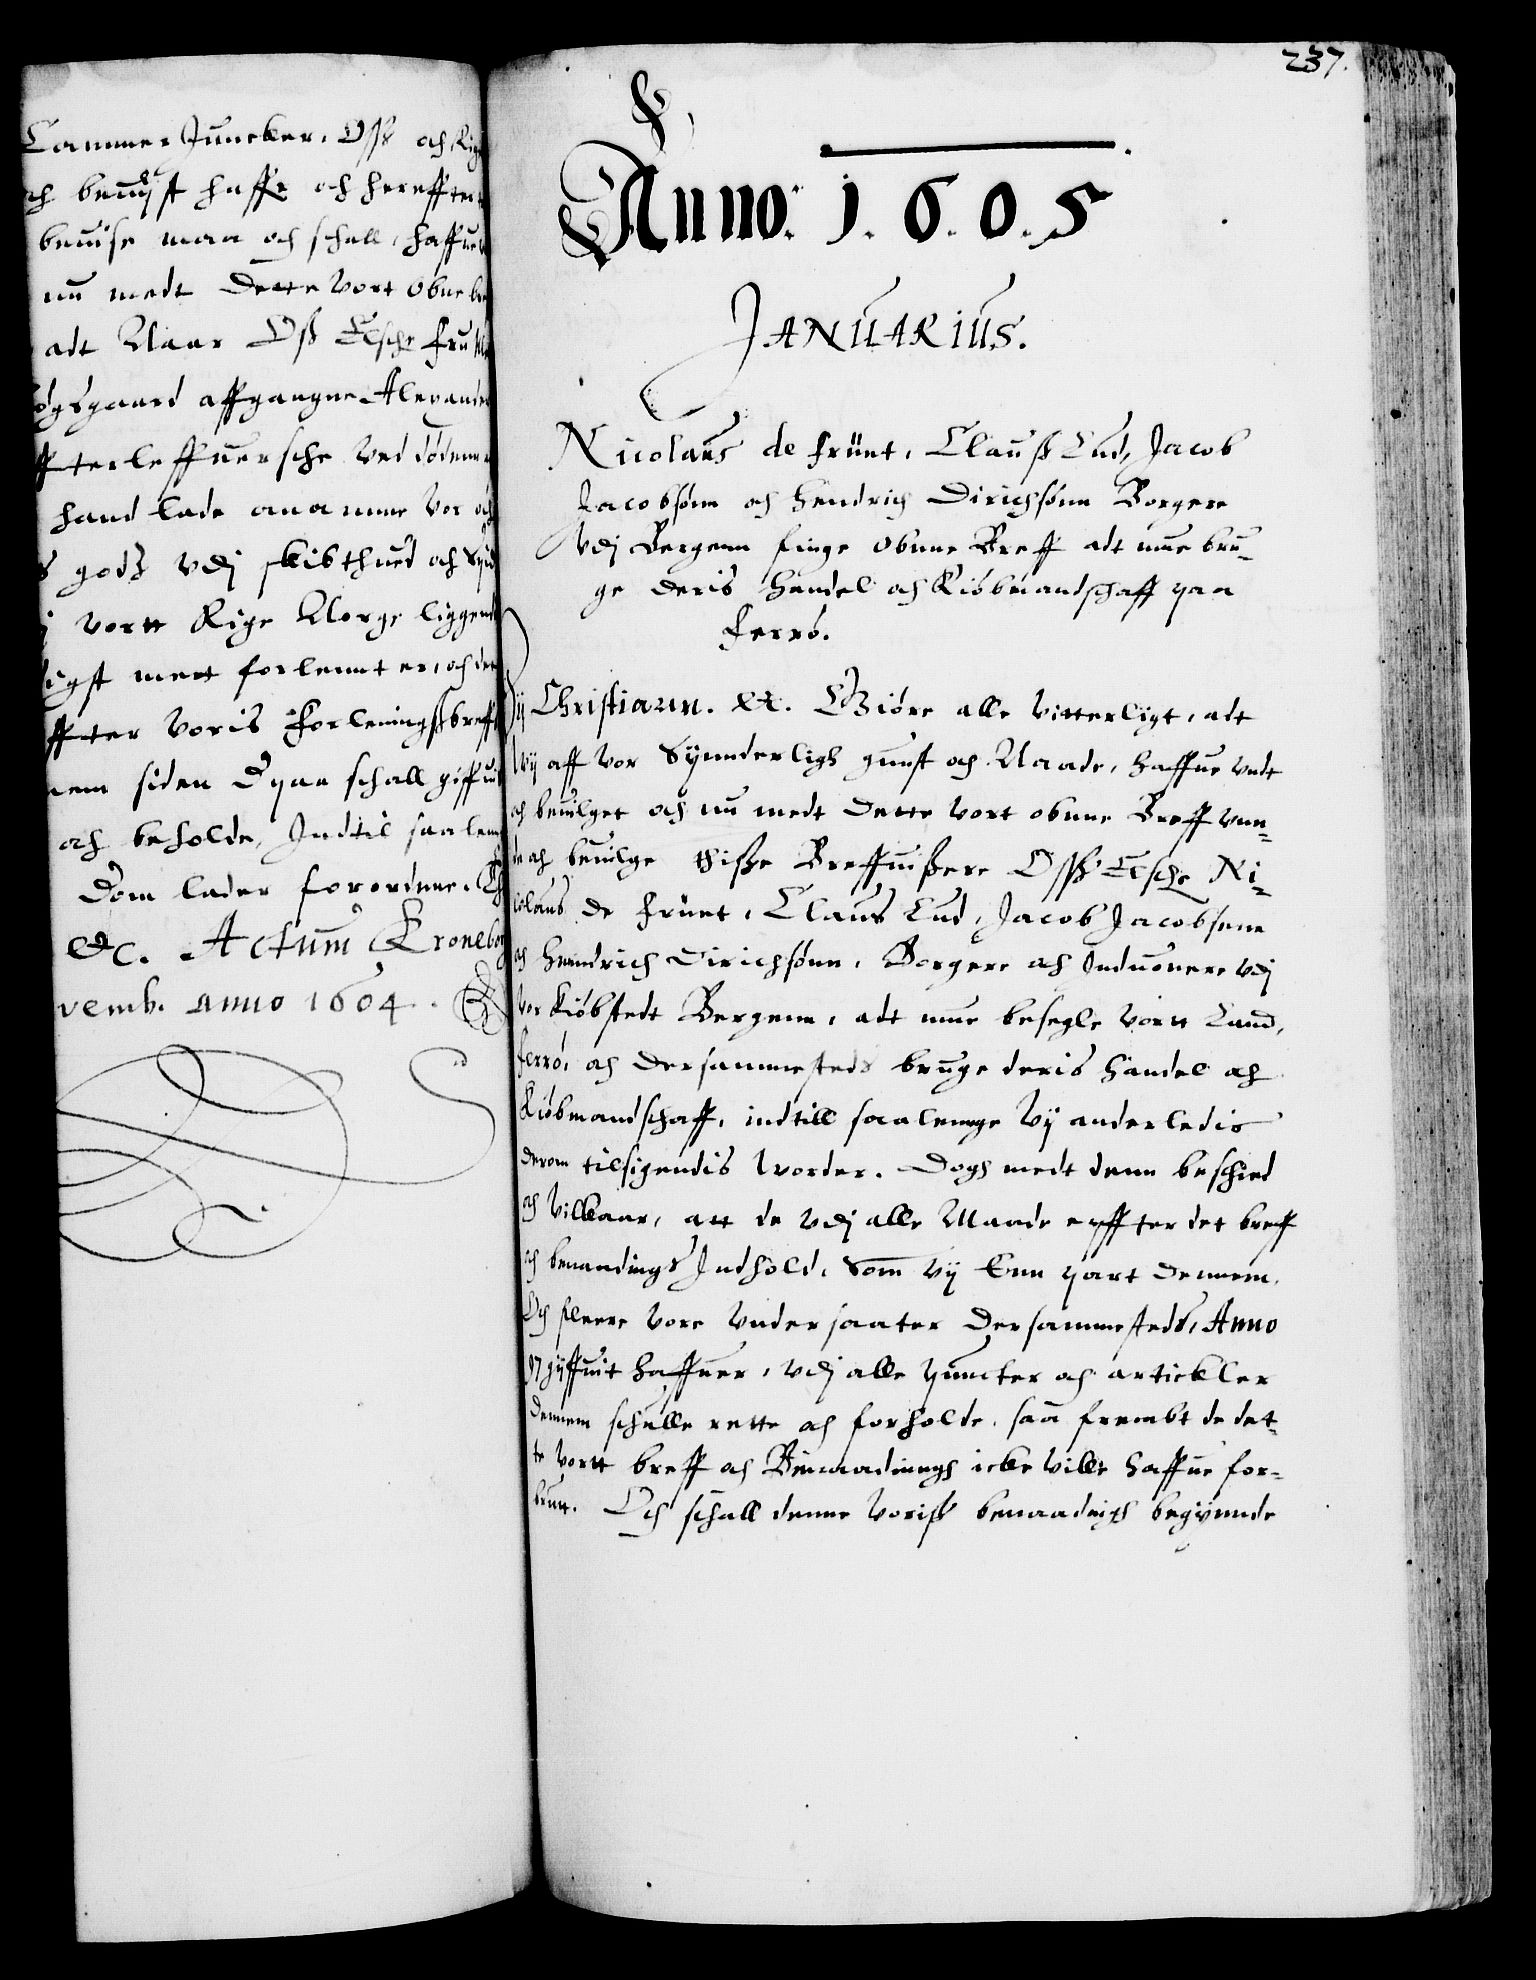 Cammer Juncker, Oss och Rig
och beuiist haffr och hereffter
beuise maa och schall, haffue
nu medt dette vort obne bre
adt Naar Oss Elsche fru
øgsgaard affgangne Alexander
ffterleffuersche ved døden
hand lade anamme vor och
s gods vdj skibthued och
j vortt Rige Norge liggend
igst mett forlennt er, och der
ffter voris Forleningsbreff
nem siden Quaa schall giffuit
och beholde, Indtil saalenn
Dom lader forordne.
etc. Actum Croneborg
vemb. anno 1604.
237.
Anno. 1. 6. 0. 5
JANUARIUS.
Nicolaus de Frünt, Clauss Lud, Jacob
Jacobsønn och Hendrich Dirichsønn Borgere
vdj Bergenn finge obnne Breff adt mue bru-
ge deris Handel och Kiøbmandschaff paa
Ferrø.
Vij Christiann. etc. Giøre alle vitterligt, adt
wij aff vor Synnderligh gunst och Naade, haffue vndt
och beuilget och nu medt dette vort obnne Breff vnn-
de och beuilge thisse Breffuissere Oss Elsche Ni-
colaus de Frünt, Claus Lud, Jacob Jacobsenn
och Henndrich Dirichsønn, Borgere och Induonere vdj
vor Kiøbstedt Bergenn, adt mue besegle vortt Land,
ferrø, och dersammesteds bruge deris Handel och
Kiøbmandschaff, indtill saalennge Vij anderledis
derom tilsigendis worder. Dogh medt denn beschied
och vilkaar, att de vdj alle Maade epffter det breff
och benandings Indhold, Som vij Enn part dennem,
Och fleere vore vndersaater dersammesteds, Anno
97 giffuit haffuer, vdj alle puncter och artickler
dennem schulle rette och forholde, saa frembt de det-
te vortt breff och Benaadinngh icke ville haffue for-
brutt. Och schall denne voriss benaadnigh begynnde